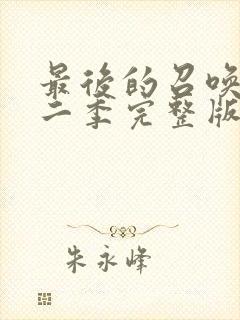 最後的召喚
二季完整版
朱永峰